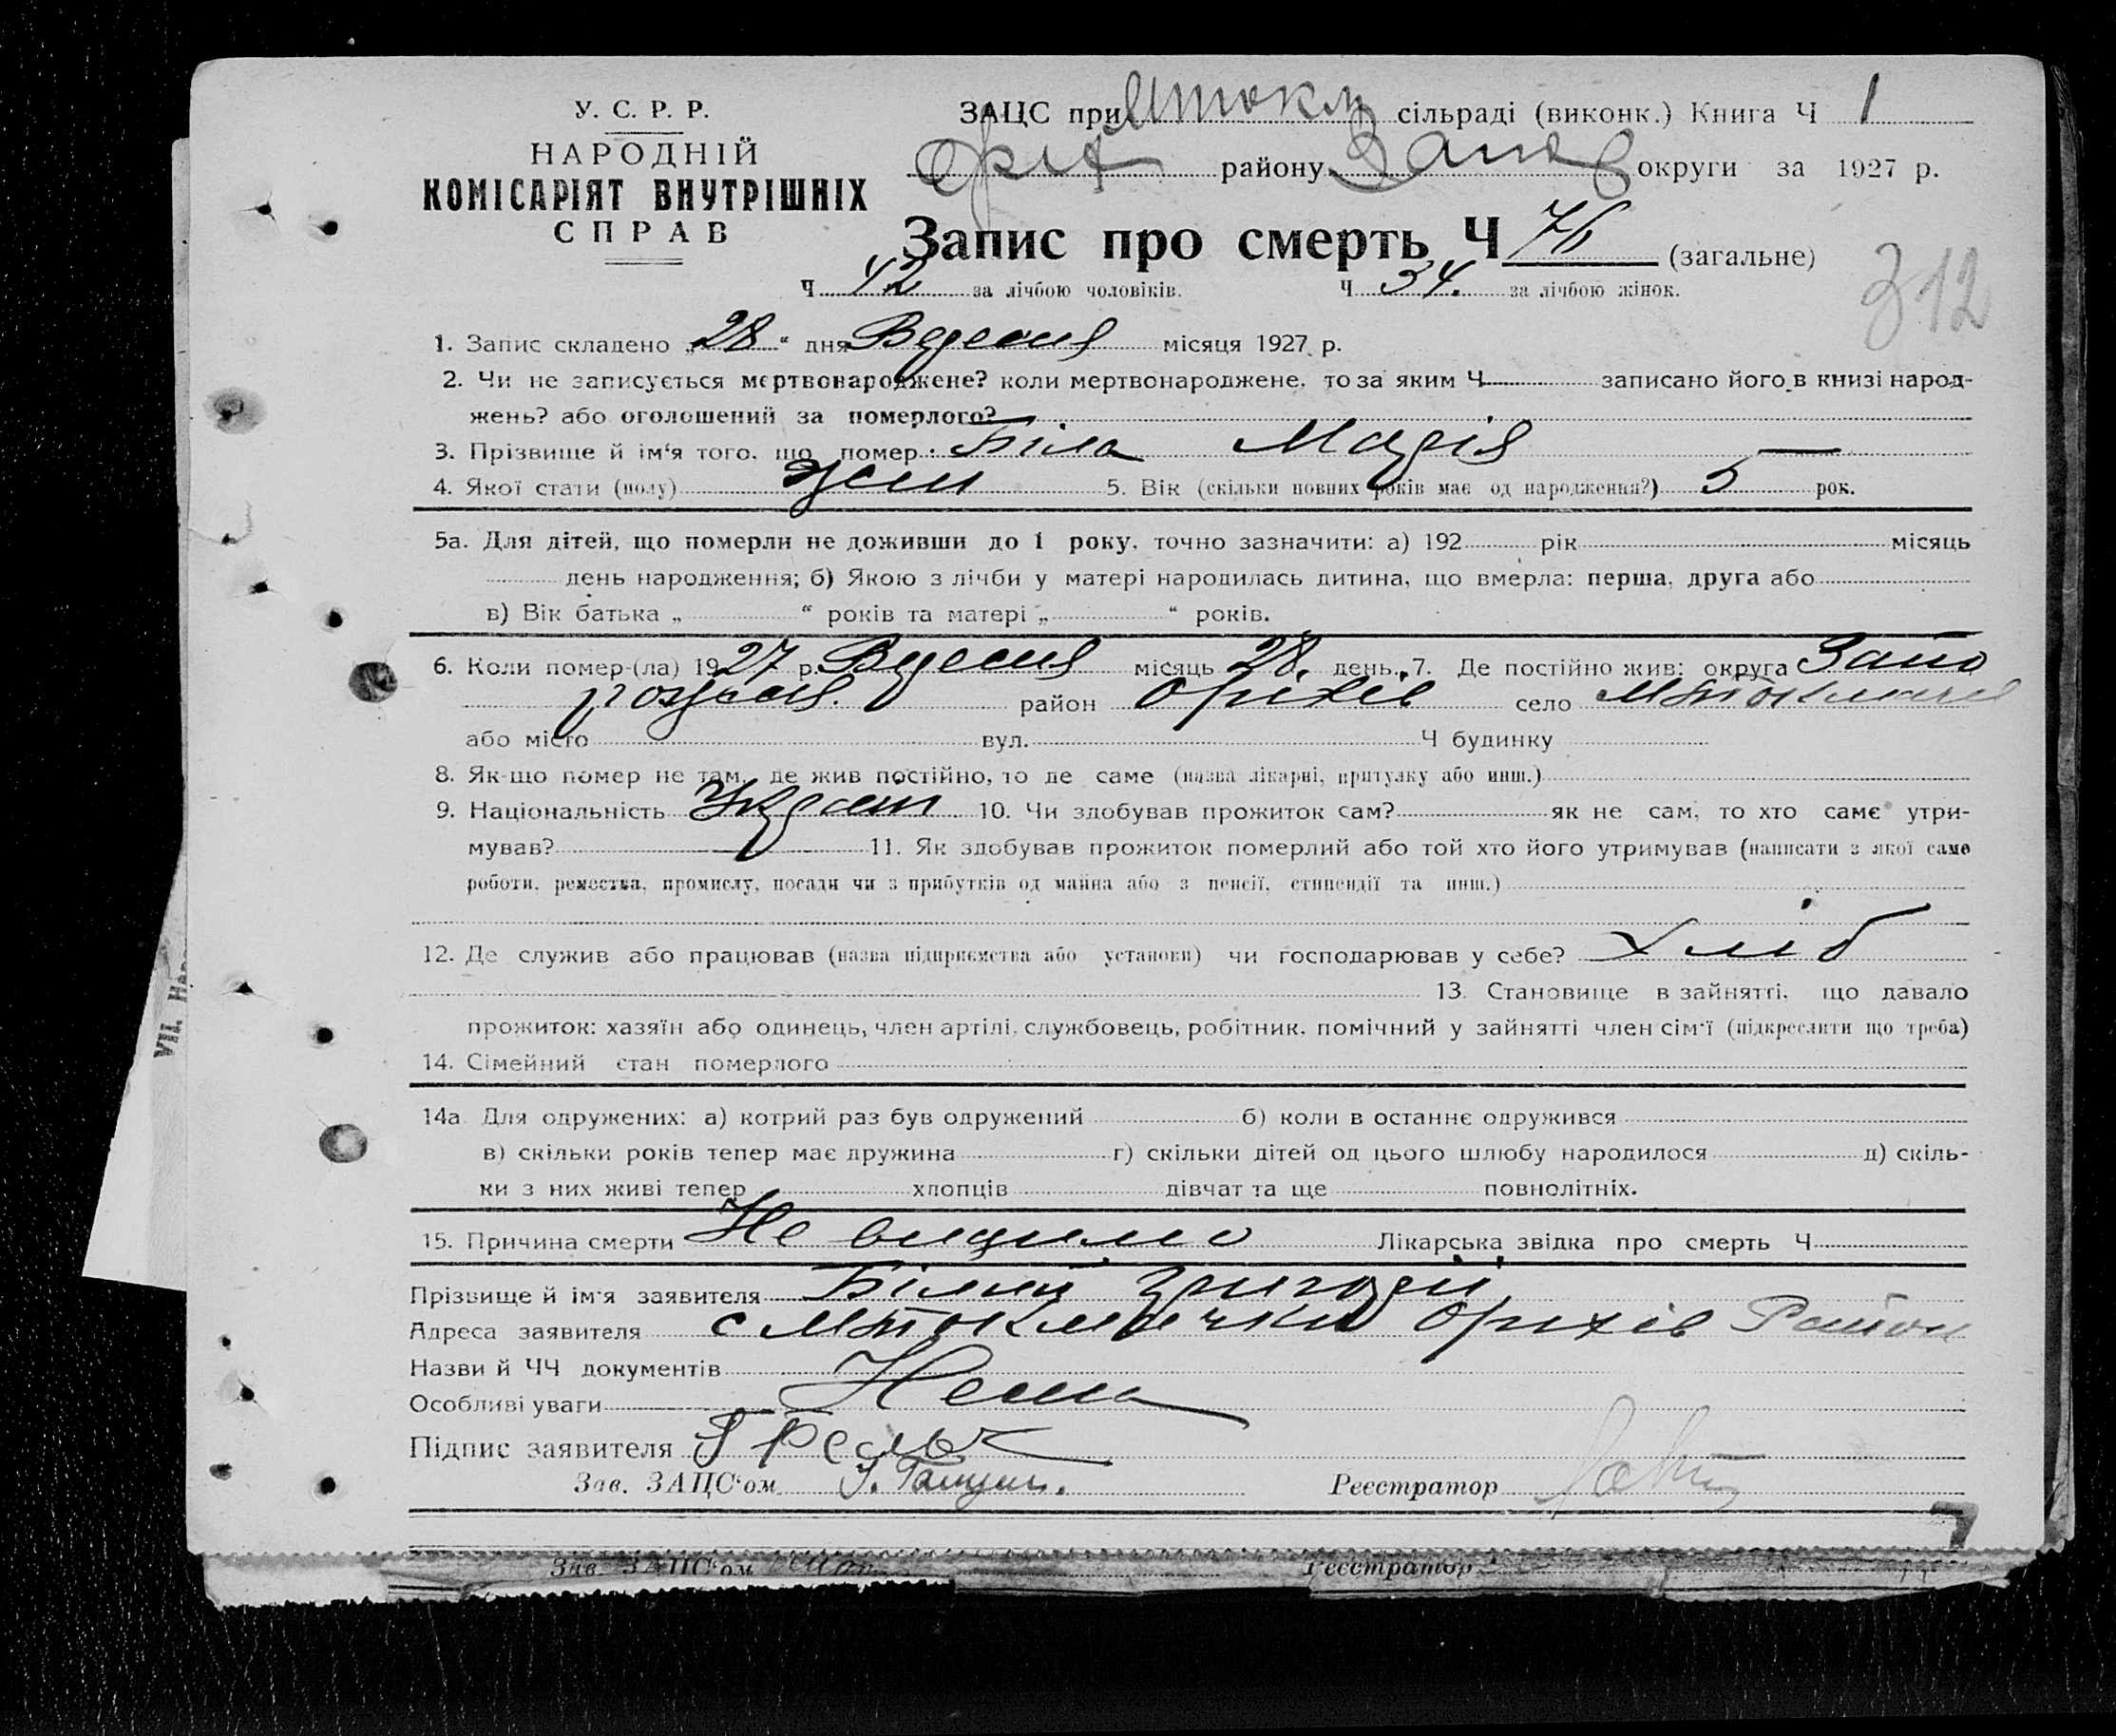 У. С. Р. Р.
НАРОДНІЙ
КОМІСАРІЯТ ВНУТРІШНІХ
СПРАВ
ЗАЦС при Мтокм сільраді (виконк.) Книга Ч 1
Оріх району Запор округи за 1927 р.
Запис про смерть Ч 76 (загальне)
312
Ч 42 за лічбою чоловіків. Ч 34. за лічбою жінок.
1. Запис складено „28“ дня Вересня місяця 1927 р.
2. Чи не записується мертвонароджене? коли мертвонароджене, то за яким Ч записано його в книзі народ-
жень? або оголошений за померлого?
3. Прізвище й ім‘я того, що помер Біла Марія
4. Якої стати (полу) жен 5. Вік (скільки повних років має од народження?) 5 рок.
5а. Для дітей, що померли не доживши до 1 року, точно зазначити: а) 192 рік місяць
день народження; б) Якою з лічби у матері народилась дитина, що вмерла: перша, друга або
в) Вік батька „ “ років та матері „ “ років.
6. Коли помер-(ла) 1927 р. Вересня місяць 28. день. 7. Де постійно жив: округа Запо
рожжя. район Оріхів село Мтокмачк
або місто вул. Ч будинку
8. Як-що помер не там, де жив постійно, то де саме (назва лікарні, притулку або инш.)
9. Національність Україн 10. Чи здобував прожиток сам? як не сам, то хто саме утри-
мував? 11. Як здобував прожиток померлий або той хто його утримував (написати з якої саме
роботи, ремества, промислу, посади чи з прибутків од майна або з пенсії, стипендії та инш.)
12. Де служив або працював (назва підприємства або установи) чи господарював у себе? хліб
13. Становище в зайнятті, що давало
прожиток: хазяїн або одинець, член артілі, службовець, робітник, помічний у зайнятті член сім‘ї (підкреслити що треба)
14. Сімейний стан померлого
14а Для одружених: а) котрий раз був одружений б) коли в останнє одружився
в) скільки років тепер має дружина г) скільки дітей од цього шлюбу народилося д) скіль-
ки з них живі тепер хлопців дівчат та ще повнолітніх.
15. Причина смерти Не видимо Лікарська звідка про смерть Ч
Прізвище й ім‘я заявителя Білий Григорій
Адреса заявителя с Мтокмачки Оріхів Район
Назви й ЧЧ документів
Особливі уваги Нема
Підпис заявителя
Зав. ЗАЦС‘ом
Реєстратор
Зав. ЗАЦС‘ом Реєстратор
VII.